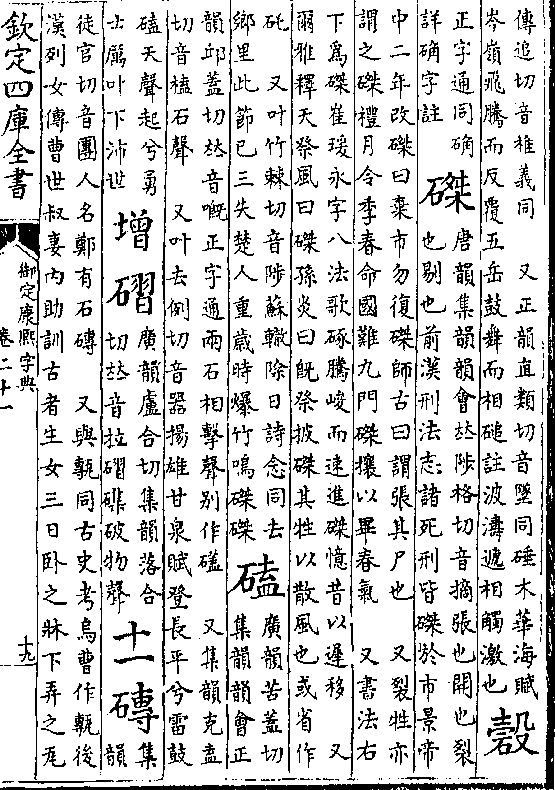 傳追切音椎義同　又正韻直類切音墜同硾木華海賦
岑嶺飛騰而反覆五岳鼓舞而相磓註波濤遞相觸激也
正字通同确
詳确字註
磔
唐韻集韻韻會𠀤陟格切音摘張也開也裂
也剔也前漢刑法志諸死刑皆磔於市景帝
中二年改磔曰棄市勿復磔師古曰謂張其尸也　又裂牲亦
謂之磔禮月令季春命國難九門磔攘以畢春氣　又書法右
下爲磔崔瑗永字八法歌硺騰峻而速進磔憶昔以遲移　又
爾雅釋天祭風曰磔孫炎曰旣祭披磔其牲以散風也或省作
矺　又叶竹棘切音陟蘇轍除日詩念同去
鄉里此節已三失楚人重歲時爆竹鳴磔磔
磕
廣韻苦蓋切
集韻韻會正
韻邱蓋切𠀤音嘅正字通兩石相擊聲別作礚　又集韻克盍
切音榼石聲　又叶去倒切音嚣揚雄甘泉賦登長平兮雷鼓
磕天聲起兮勇
士厲叶下沛世
增磖
廣韻盧合切集韻落合
切𠀤音拉磖磼破物聲
十一磚
集
韻
徒官切音團人名鄭有石磚　又與甎同古史考烏曹作甎後
漢列女傳曹世叔妻內助訓古者生女三日卧之牀下弄之瓦
欽定四庫全書
御定康熙字典
卷二十一
十九